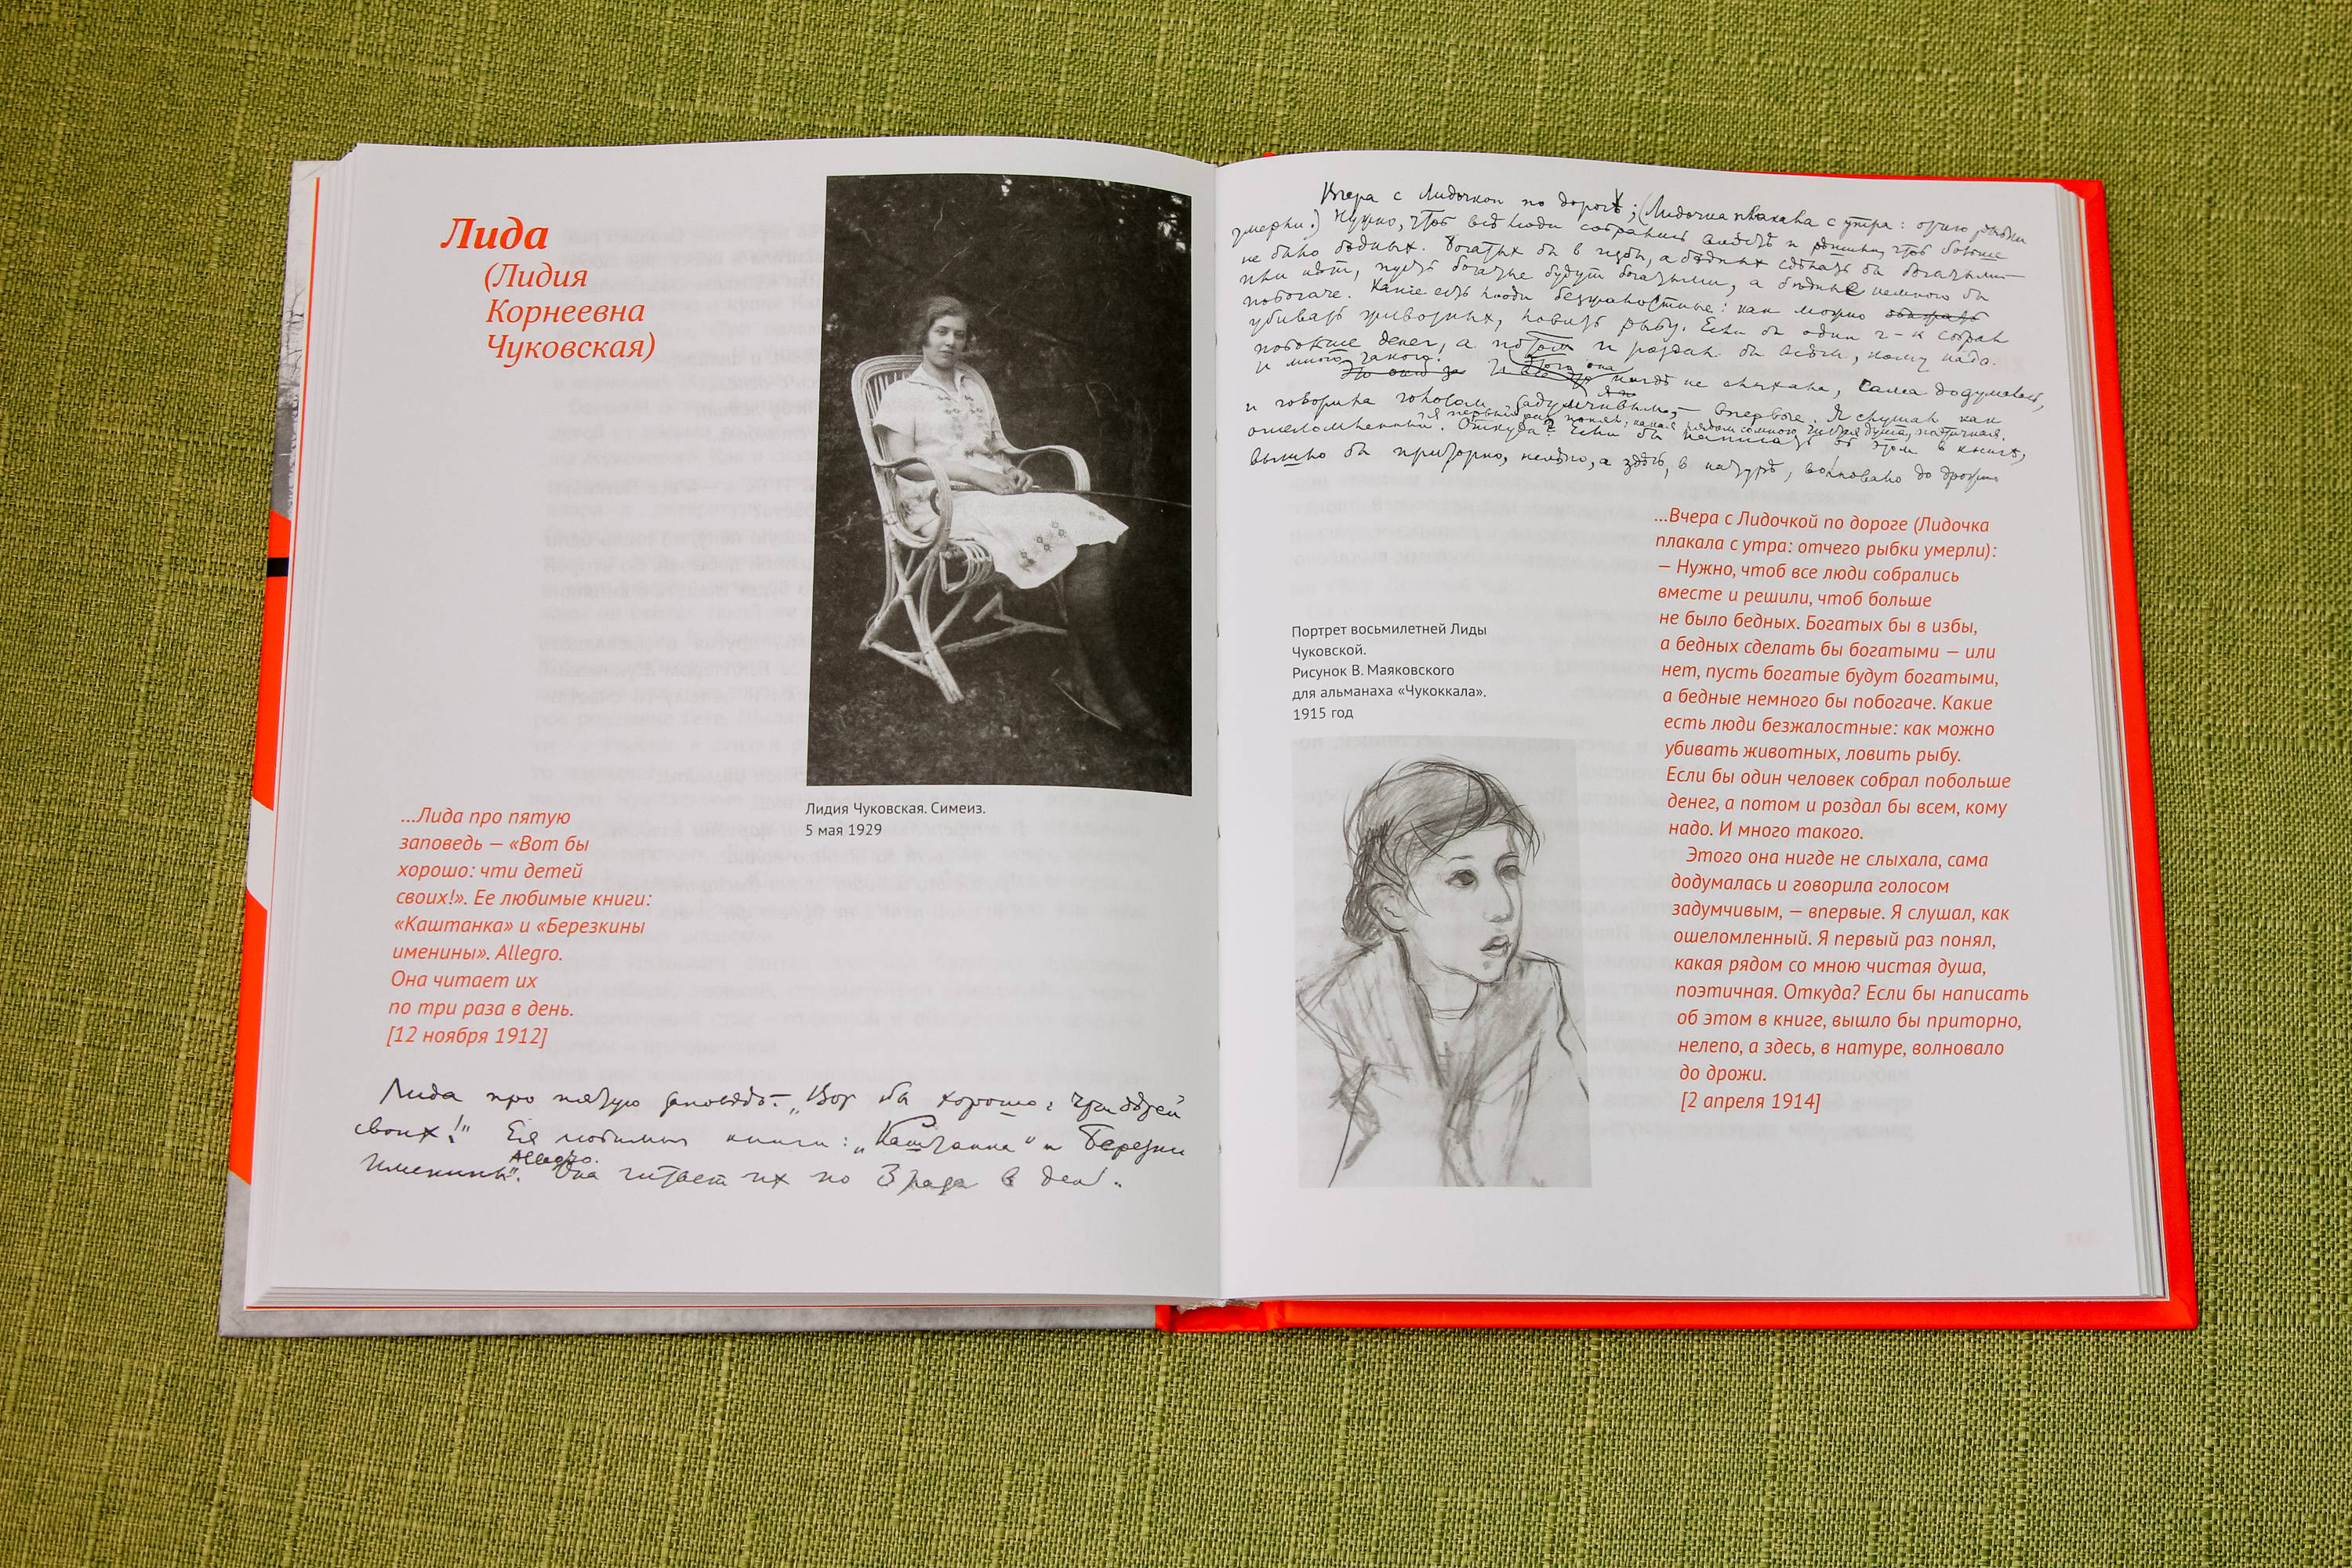 Лида
(Лидия
Корнеевна
Чуковская)
Лидия Чуковская. Симеиз.
5 мая 1929
...Лида про пятую
заповедь — «Вот бы
хорошо: чти детей
своих!». Ее любимые книги:
«Каштанка» и «Березкины
именины». Allegro.
Она читает их
по три раза в день.
[12 ноября 1912]
Лида про пятую заповѣдь — „Вот бы хорошо: чти дѣтей
своих!" Ея любимыя книги: „Каштанка" и Березкины
Allegro.
именины". Она читает их по 3 раза в день.
Вчера с Лидочкой по дорогѣ; (Лидочка плакала с утра: отчего рыбки
умерли.) Нужно, чтоб всѣ люди собрались вмѣстѣ и рѣшили, чтоб больше
не было бѣдных. Богатых бы в избы, а бѣдных сдѣлать бы богатыми —
или нѣт, пусть богатые будут богатыми, а бѣдные немного бы
побогаче. Какие есть люди безжалостные: как можно
убивать животных, ловить рыбу. Если бы один ч-к собрал
побольше денег, а потом и роздал бы всѣм, кому надо.
И много такого.
Этого она нигдѣ не слыхала, сама додумалась,
и говорила голосом задумчивым, — впервые. Я слушал как
я первый раз понял, какая рядом со мною чистая душа, поэтичная.
ошеломленный. Откуда? Если бы написать об этом в книгѣ,
вышло бы приторно, нелѣпо, а здѣсь, в натурѣ, волновало до дрожи
...Вчера с Лидочкой по дороге (Лидочка
плакала с утра: отчего рыбки умерли):
— Нужно, чтоб все люди собрались
вместе и решили, чтоб больше
не было бедных. Богатых бы в избы,
а бедных сделать бы богатыми — или
нет, пусть богатые будут богатыми,
а бедные немного бы побогаче. Какие
есть люди безжалостные: как можно
убивать животных, ловить рыбу.
Если бы один человек собрал побольше
денег, а потом и роздал бы всем, кому
надо. И много такого.
Этого она нигде не слыхала, сама
додумалась и говорила голосом
задумчивым, — впервые. Я слушал, как
ошеломленный. Я первый раз понял,
какая рядом со мною чистая душа,
поэтичная. Откуда? Если бы написать
об этом в книге, вышло бы приторно,
нелепо, а здесь, в натуре, волновало
до дрожи.
[2 апреля 1914]
Портрет восьмилетней Лиды
Чуковской.
Рисунок В. Маяковского
для альманаха «Чукоккала».
1915 год